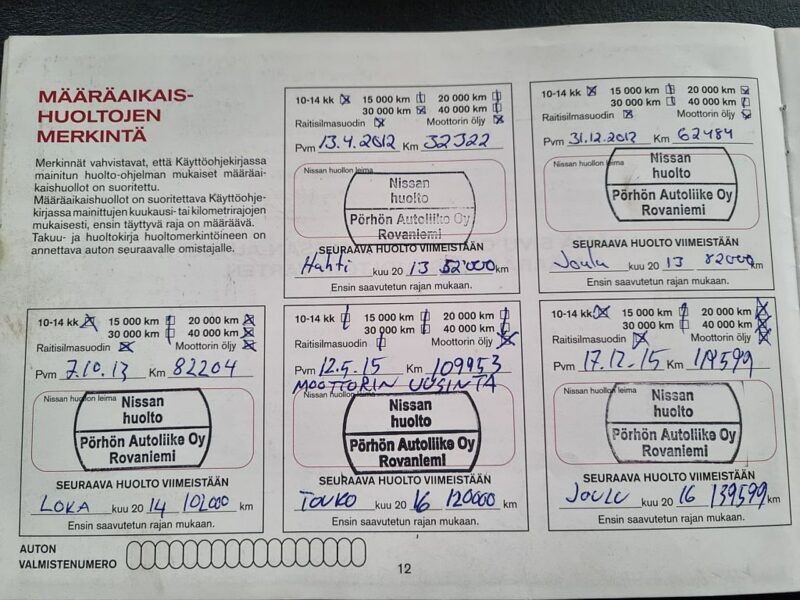 MÄÄRÄAIKAIS-
HUOLTOJEN
MERKINTÄ
Merkinnät vahvistavat, että Käyttöohjekirjassa
mainitun huolto-ohjelman mukaiset määräai-
kaishuollot on suoritettu.
Määräaikaishuollot on suoritettava Käyttöohje-
kirjassa mainittujen kuukausi- tai kilometrirajojen
mukaisesti, ensin täyttyvä raja on määräävä.
Takuu- ja huoltokirja huoltomerkintöineen on
annettava auton seuraavalle omistajalle.
10-14 kk 15 000 km 20 000 km
30 000 km 40 000 km
Raitisilmasuodin Moottorin öljy
Pvm 13.4.2012 Km 32322
Nissan huollon leima
Nissan
huolto
Pörhön Autoliike Oy
Rovaniemi
SEURAAVA HUOLTO VIIMEISTÄÄN
Huhti kuu 20 13 52000 km
Ensin saavutetun rajan mukaan.
10-14 kk 15 000 km 20 000 km
30 000 km 40 000 km
Raitisilmasuodin Moottorin öljy
Pvm 31.12.2012 Km 62484
Nissan huollon leima
Nissan
huolto
Pörhön Autoliike Oy
Rovaniemi
SEURAAVA HUOLTO VIIMEISTÄÄN
Joulu kuu 20 13 82000 km
Ensin saavutetun rajan mukaan.
10-14 kk 15 000 km 20 000 km
30 000 km 40 000 km
Raitisilmasuodin Moottorin öljy
Pvm 7.10.13 Km 82204
Nissan huollon leima
Nissan
huolto
Pörhön Autoliike Oy
Rovaniemi
SEURAAVA HUOLTO VIIMEISTÄÄN
LOKA kuu 20 14 102000 km
Ensin saavutetun rajan mukaan.
10-14 kk 15 000 km 20 000 km
30 000 km 40 000 km
Raitisilmasuodin Moottorin öljy
Pvm 12.5.15 Km 109953
MOOTTORIN UUSINTA
Nissan huollon leima
Nissan
huolto
Pörhön Autoliike Oy
Rovaniemi
SEURAAVA HUOLTO VIIMEISTÄÄN
TOUKO kuu 20 16 120000 km
Ensin saavutetun rajan mukaan.
10-14 kk 15 000 km 20 000 km
30 000 km 40 000 km
Raitisilmasuodin Moottorin öljy
Pvm 17.12.15 Km 119599
Nissan huollon leima
Nissan
huolto
Pörhön Autoliike Oy
Rovaniemi
SEURAAVA HUOLTO VIIMEISTÄÄN
JOULU kuu 20 16 139599 km
Ensin saavutetun rajan mukaan.
AUTON
VALMISTENUMERO
12